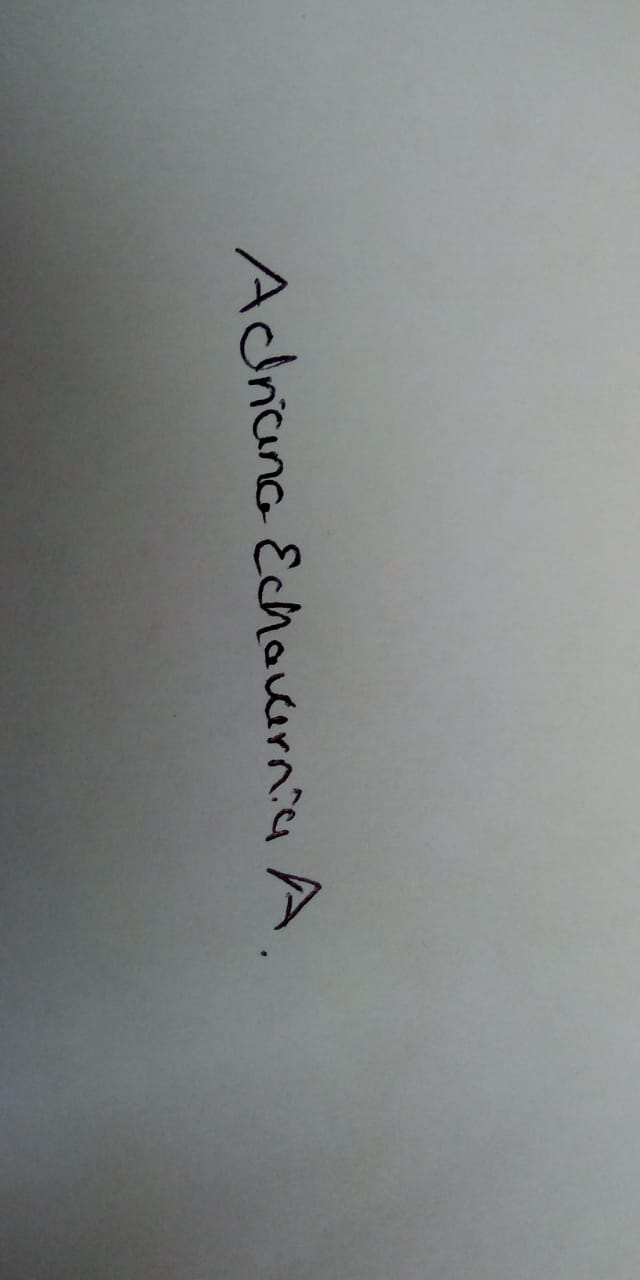 Adriana Echaverria A.